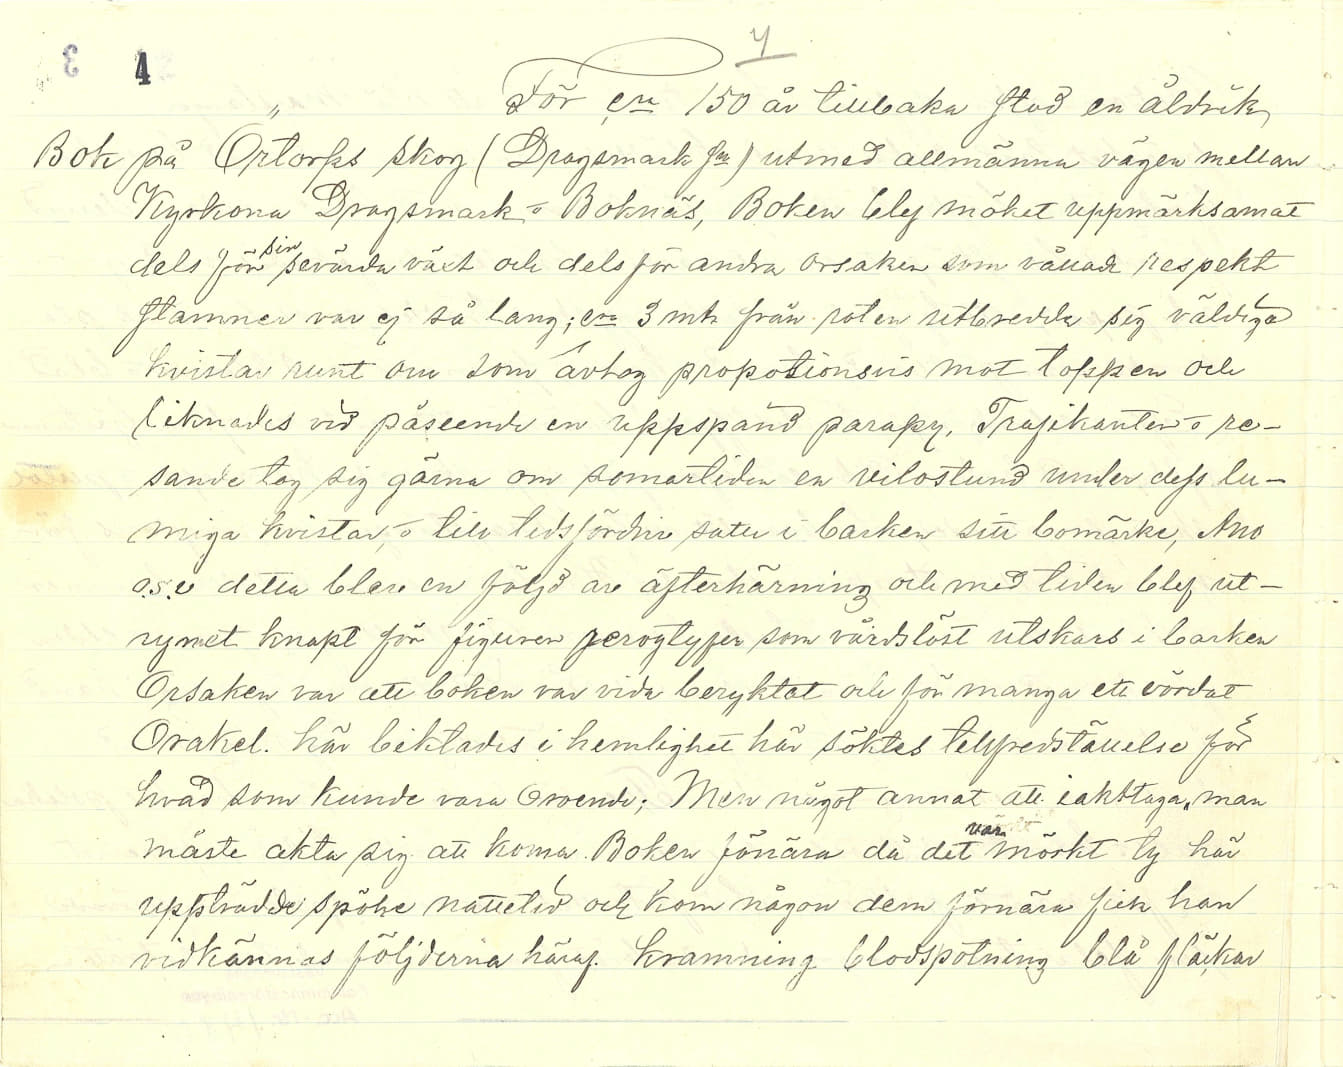 4
4
För cra 150 år tillbaka stod en åldrik
Bok på Ortorps skog (Dragsmark sn) utmed allmänna vägen mellan
Kyrkona Dragsmark o Boknäs, Boken blef möket uppmärksamat
dels för sin sevärda växt och dels för andra orsaker som vållade respekt
stamner var ej så lang; cra 3 mtr från roten utbredde sig väldiga
kvistar runt om som avtog propotionsvis mot toppen och
liknades vid påseende en uppspänd paraply, Trafikanter o re-
sande tog sig gärna om somartiden en vilostund under dess lu-
miga kvistar, o till tidsfördriv satte i barken sitt bomärke, Ano
o.s.v detta blev en följd av äfterhärming och med tiden blef ut-
rymet knapt för figurer jerogtyfer som vårdslöst utskars i barken
Orsaken var att boken var vida beryktat och för manga ett vördat
Orakel. här biktades i hemlighet här söktes telfredställelse för
hvad som kunde vara Oroende; Men något annat att iakttaga, man
måste akta sig att koma Boken förnära då det var mörkt ty här
uppträdde spöke nattetid och kom någon dem förnära fick han
vidkännas följderna häraf. kramning blodspotning blå fläckar